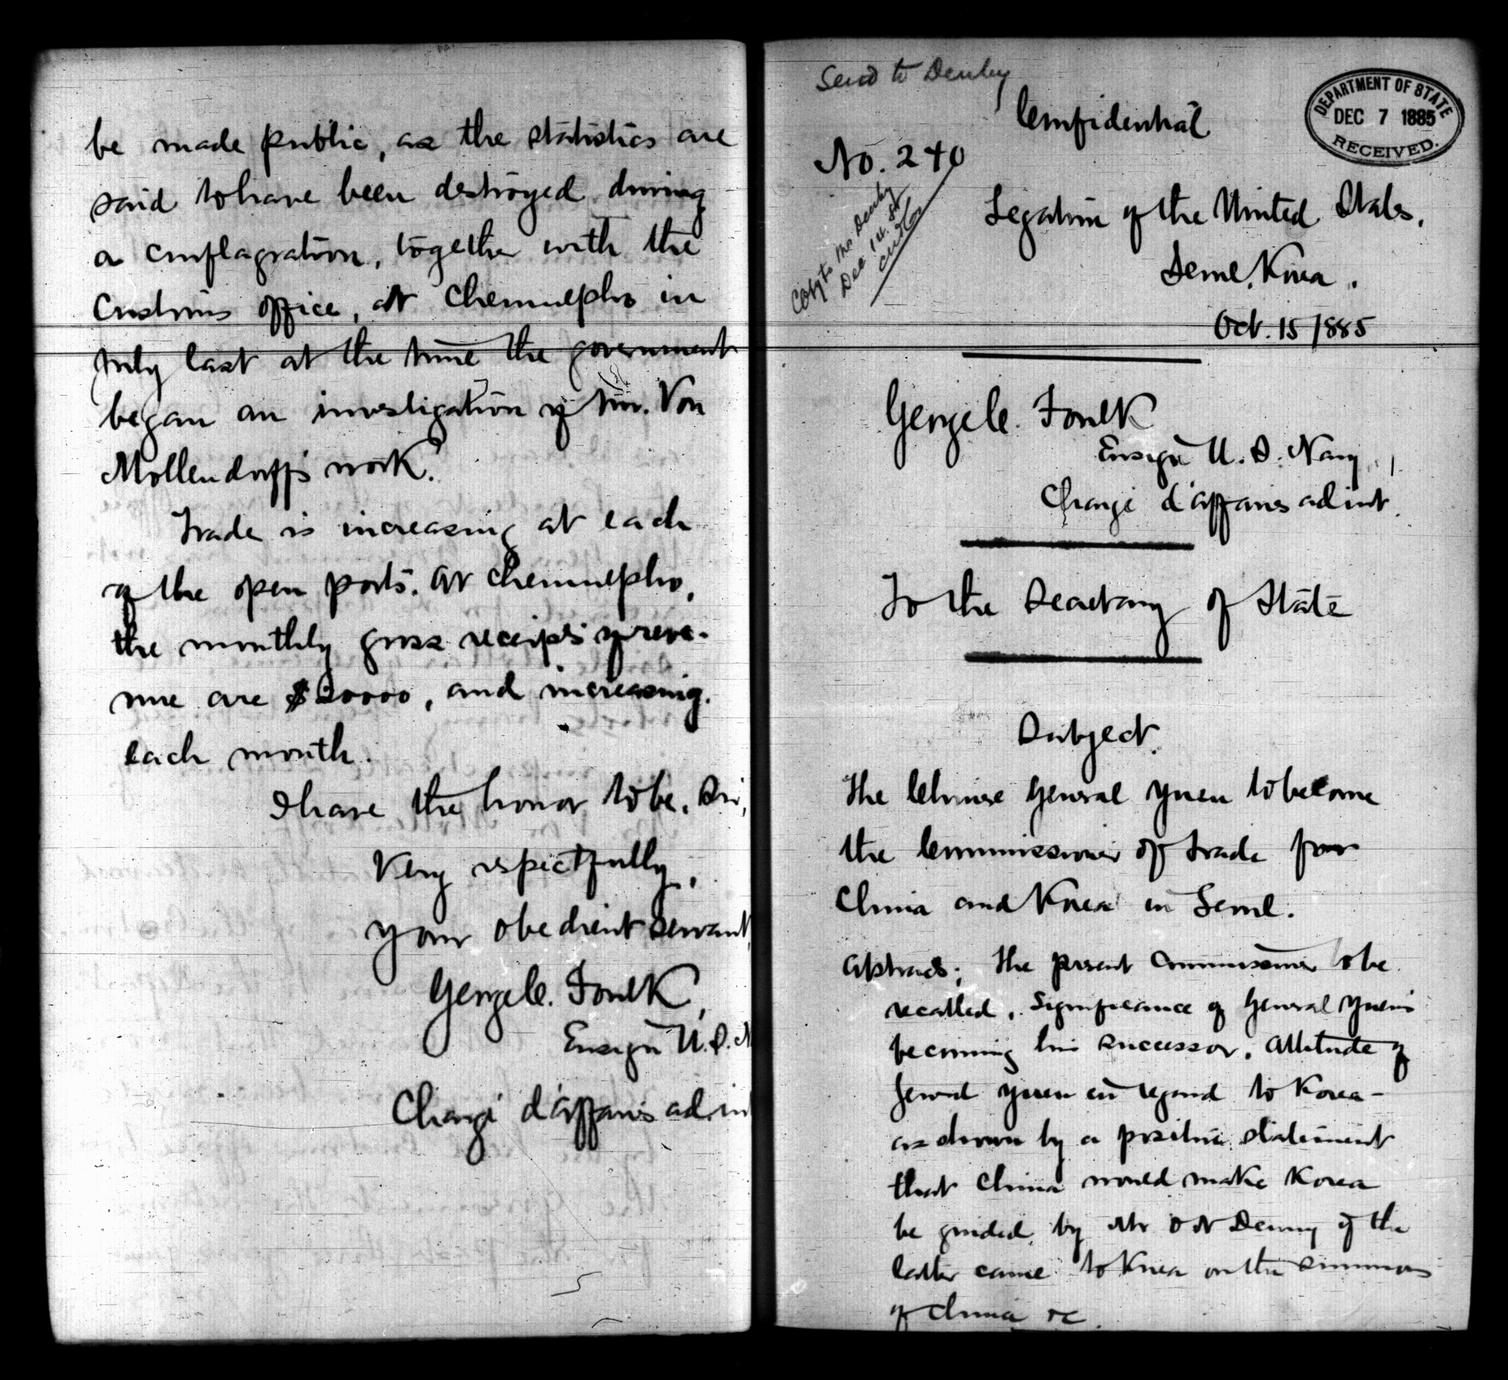 be made public, as the statistics are
said to have been destroyed during
a conflagration, together with the
Customs office, at Chemulpho in
July last at the time the government
began an investigation of Mr. Von
Mollendorff's work.
Trade is increasing at each
of the open ports. At Chemulpho,
the monthly gross receipts of reve-
nue are $20000, and increasing
each month.
I have the honor to be, Sir,
Very respectfully,
your obedient servant
George C. Foulk,
Ensign U.S.N
Chargé d'affaires ad int
5
Send to Denby
Confidential
DEPARTMENT OF STATE
DEC 7 1885
RECEIVED.
No. 240
Copy to Mr Denby
Dec 14. 85
Legation of the United States,
Seoul, Korea.
Oct. 15 1885
George C. Foulk
Ensign U.S. Navy,
Chargé d'affaires ad int.
To the Secretary of State
Subject.
The Chinese General Yuen to become
the Commissioner of Trade for
China and Korea in Seoul.
Abstract; The present Commissioner to be
recalled. Significance of General Yuen's
becoming his successor. Attitude of
General Yuen in regard to Korea-
as shown by a positive statement
that China would make Korea
be guided by Mr O N Denny if the
latter came to Korea on the summons
of China &c.